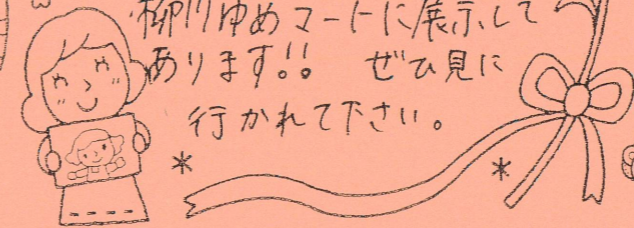 柳川ゆめマートに展示して
あります!! ぜひ見に
行かれて下さい。